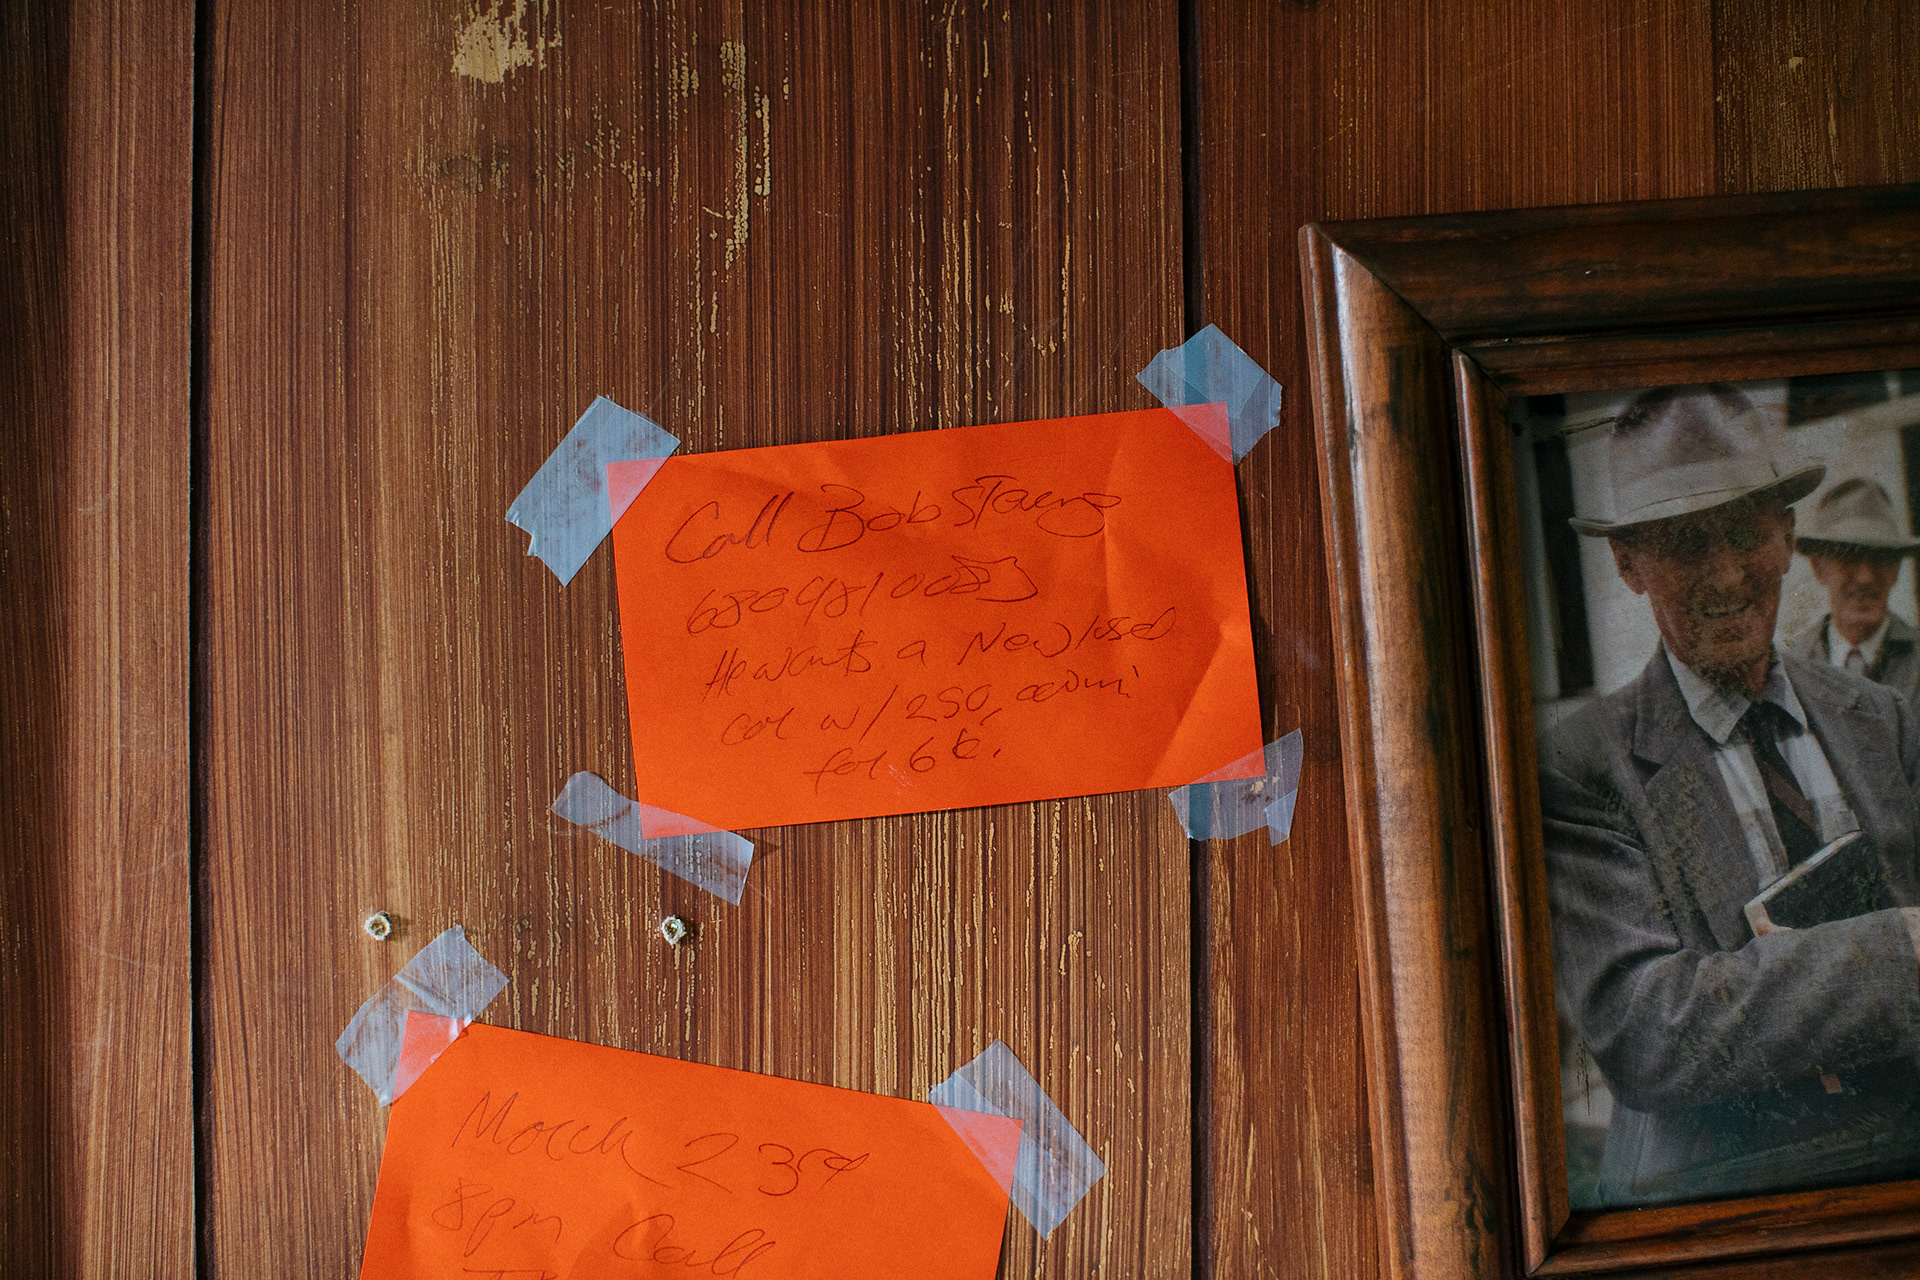 Call Bob
6809810083
He wants a New/used
car w/ 250,
for 6k.
March 23rd
8pm Call